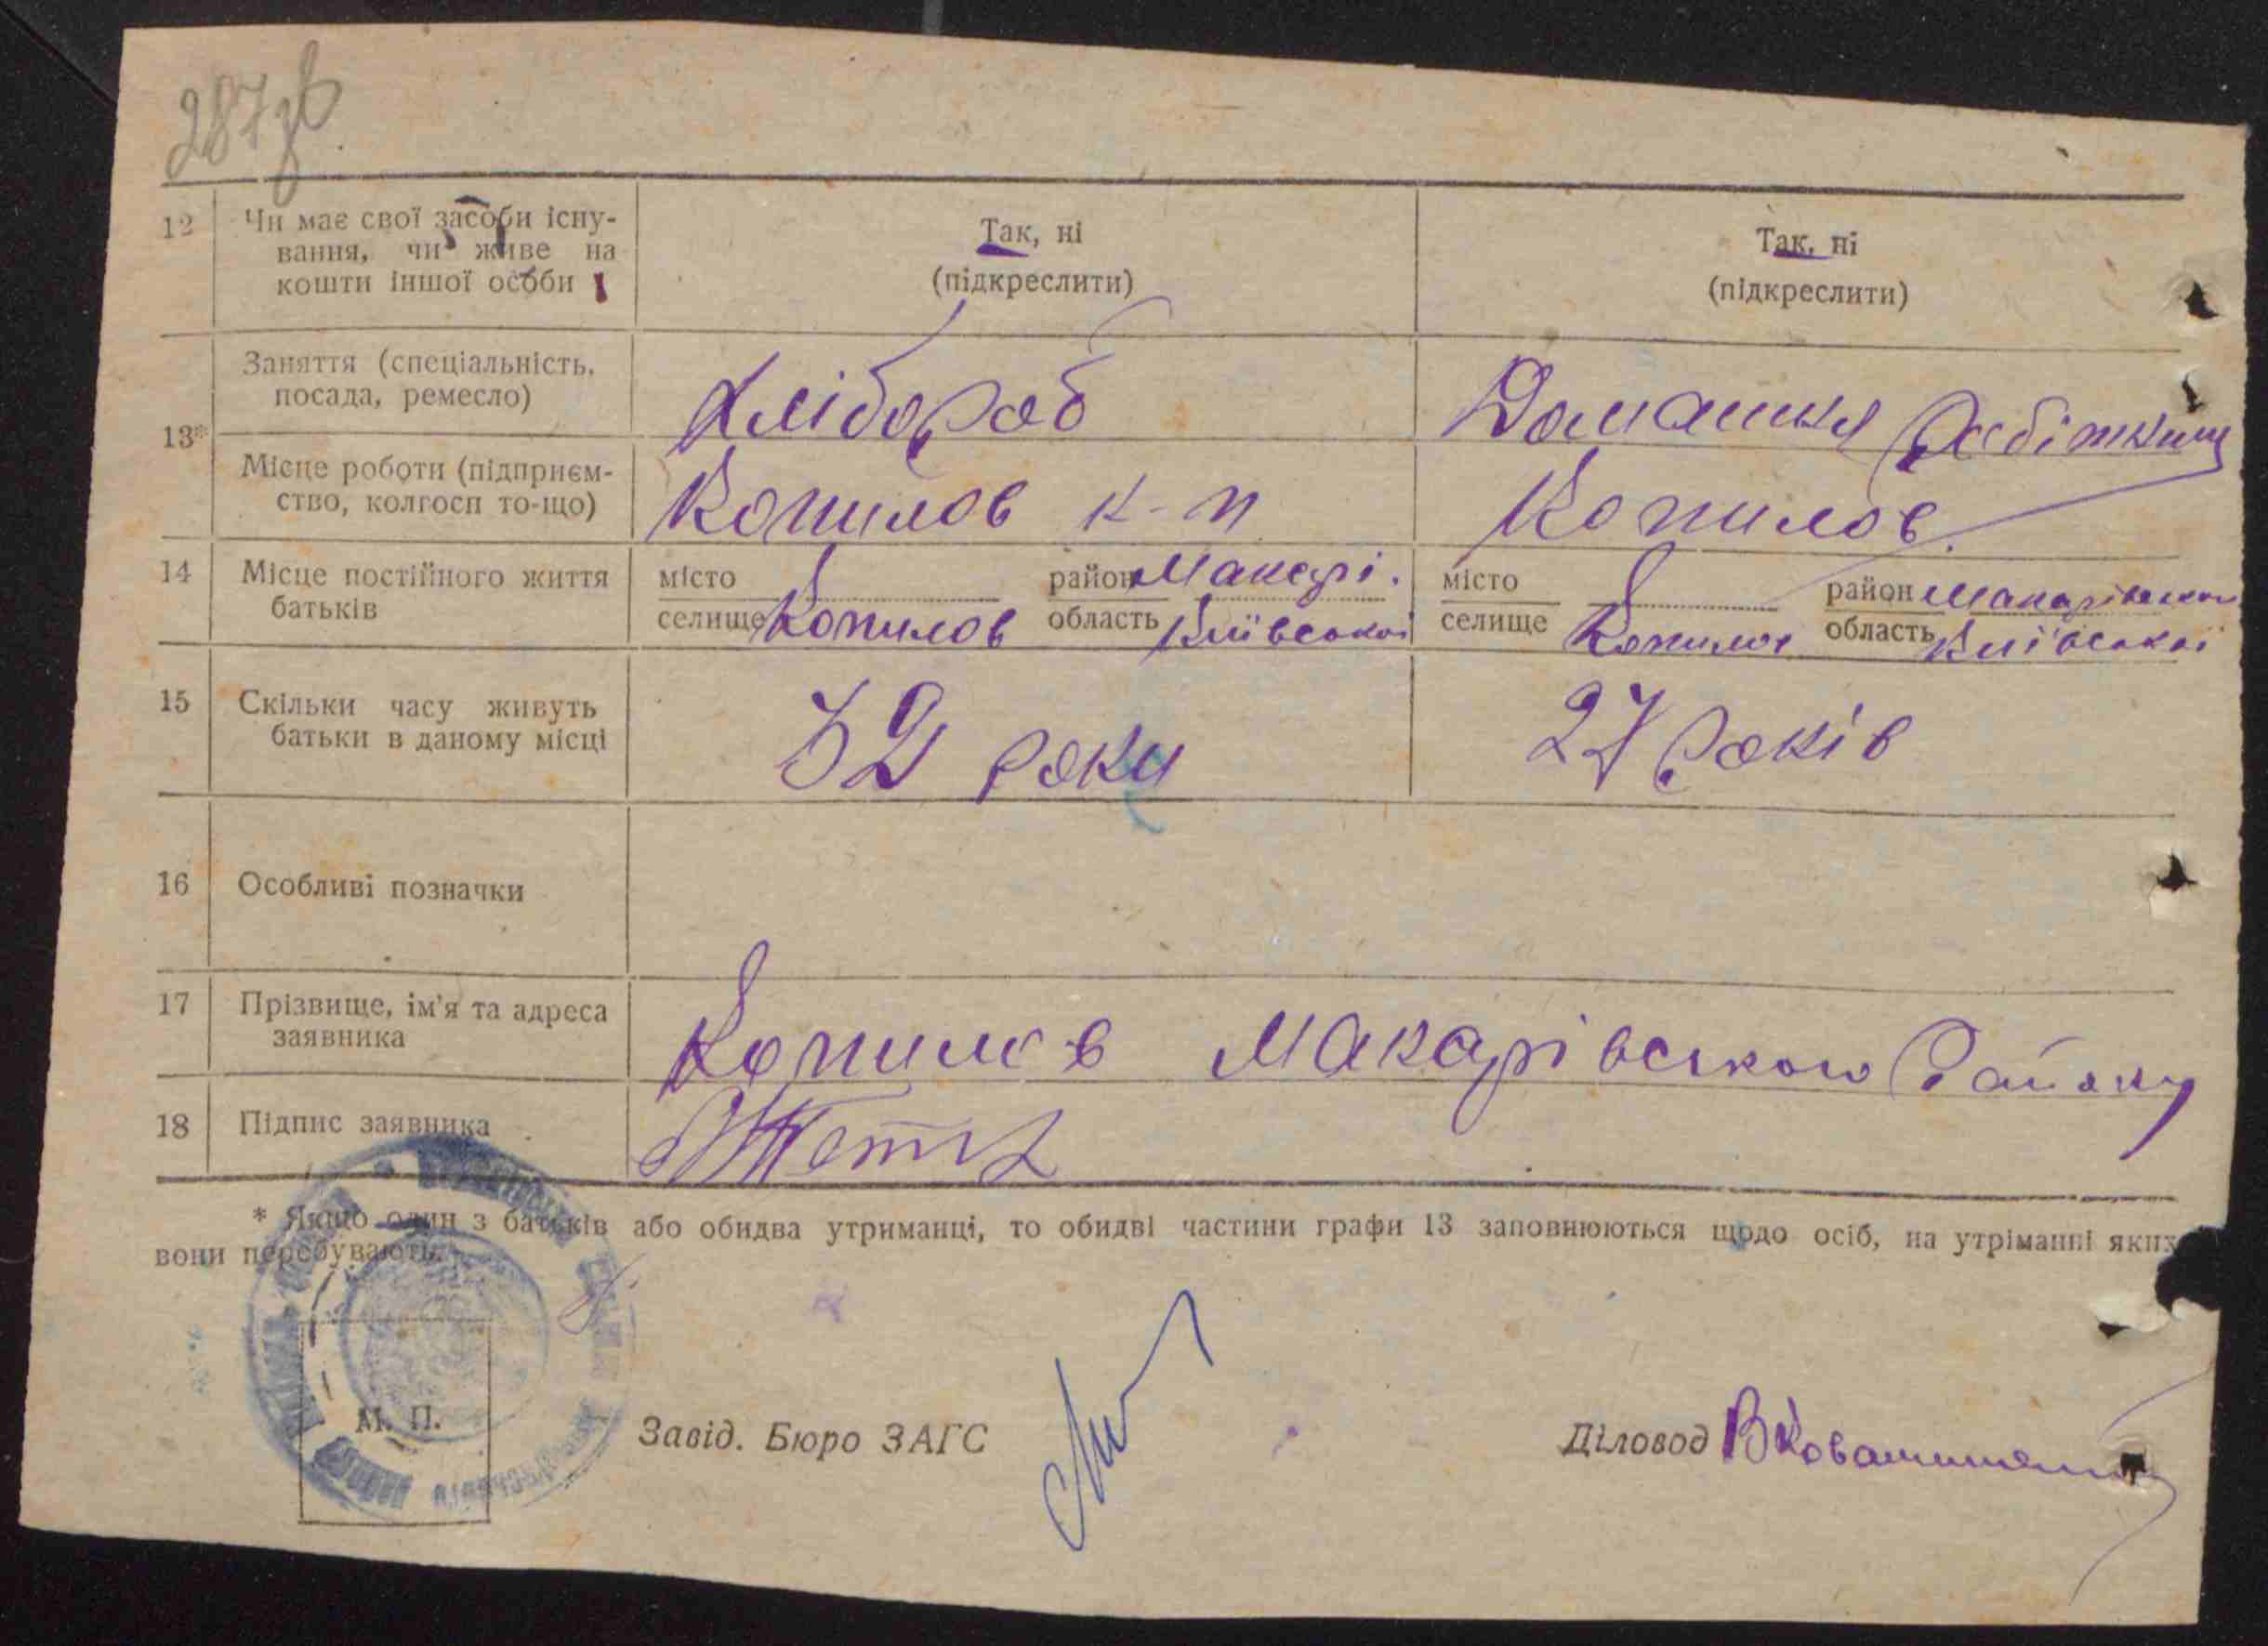 287зв
12 Чи має свої засоби існу-
вання, чи живе на
кошти іншої особи
Так, ні
(підкреслити)
Так, ні
(підкреслити)
13* Заняття (спеціальність,
посада, ремесло)
Хлібороб
Домашня робітниця
Місце роботи (підприєм-
ство, колгосп то-що)
Копилов к-п
Копилов
14 Місце постійного життя
батьків
місто район Макарі.
селище Копилов область Київської
місто район Макарівського
селище Копилов область Київської
15 Скільки часу живуть
батьки в даному місці
32 роки
27 років
16 Особливі позначки
17 Прізвище, ім'я та адреса
заявника
Копилов Макарівського району
18 Підпис заявника
* Якщо один з батьків або обидва утриманці, то обидві частини графи 13 заповнюються щодо осіб, на утріманні яких
вони перебувають.
М. П.
Завід. Бюро ЗАГС
Діловод